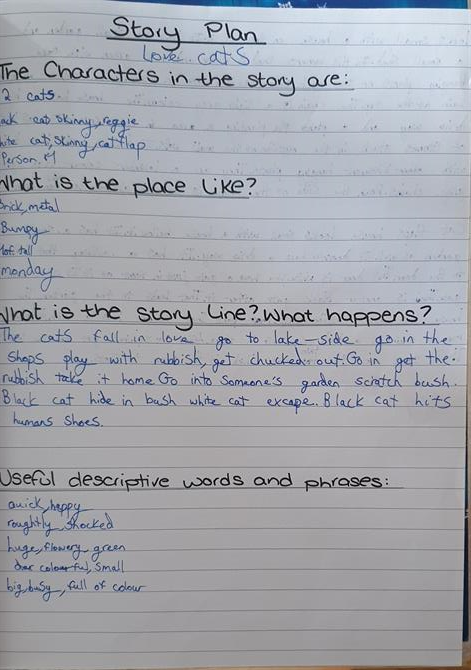 Story Plan
Love cats
The Characters in the story are:
2 cats
ack cat skinny, reggie
hite cat, skinny, catflap
Person. M
What is the place like?
brick, metal
Bumpy
tall
monday
What is the story line? What happens?
The cats fall in love go to lake-side go in the
shops play with rubbish, get chucked out. Go in get the
rubbish take it home Go into someone's garden scratch bush.
Black cat hide in bush white cat excape. Black cat hits
humans shoes.
Useful descriptive words and phrases:
quick, happy
roughtly, shocked
huge, flowery green
colourful, small
big, busy, full of colour